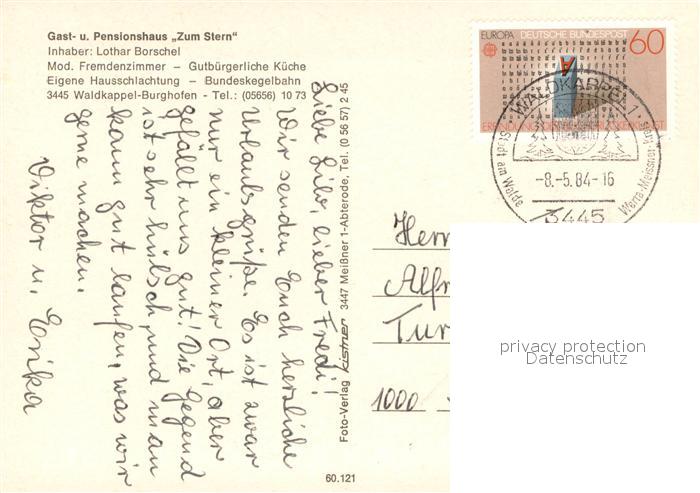 Gast- u. Pensionshaus „Zum Stern“
Inhaber: Lothar Borschel
Mod. Fremdenzimmer – Gutbürgerliche Küche
Eigene Hausschlachtung – Bundeskegelbahn
3445 Waldkappel-Burghofen - Tel.: (05656) 10 73
Liebe Lilo, lieber Fredi!
Wir senden Euch herzliche
Urlaubsgrüße. Es ist zwar
nur ein kleiner Ort, aber
gefällt uns gut! Die Gegend
ist sehr hübsch und man
kann gut laufen, was wir
gerne machen.
Viktor u. Erika
Foto-Verlag kistner 3447 Meißner 1-Abterode, Tel. (0 56 57) 2 45
60.121
EUROPA DEUTSCHE BUNDESPOST 60
WALDKAPPEL 1
Stadt am Walde
Werra-Meissner-Kreis
-8.-5.84-16
3445
Herr
Alfr
Tur
1000
privacy protection
Datenschutz